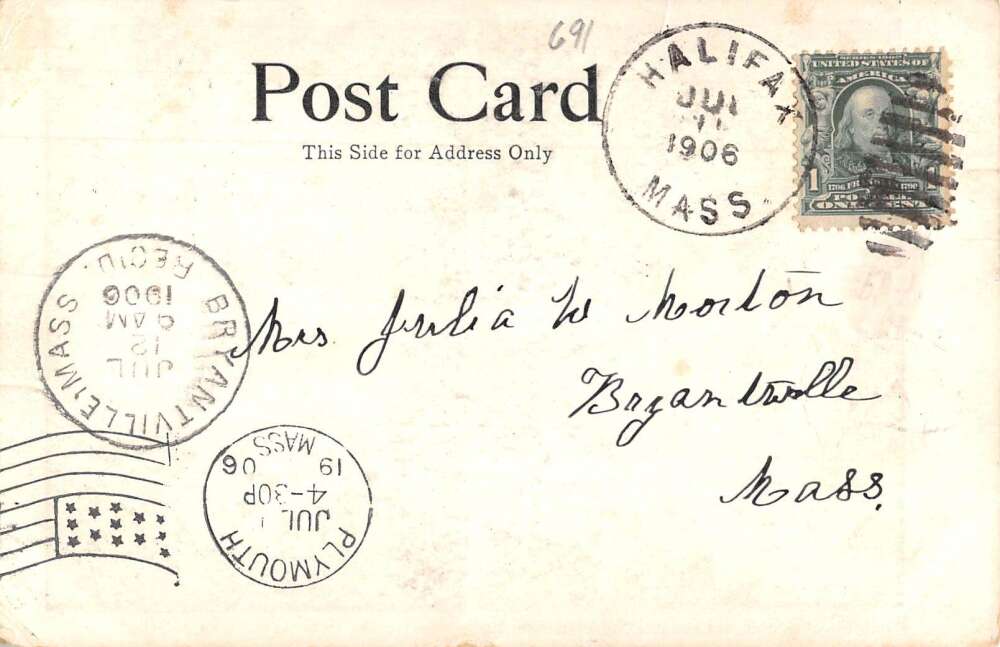 691
Post Card
This Side for Address Only
HALIFAX
JUL
11
1906
MASS
SERIES 1902
UNITED STATES OF
AMERICA
1
1706 FR 1790
ONE CENT
BRYANTVILLE, MASS.
JUL
12
9 AM
1906
REC'D.
Mrs Julia W Morton
Bryantville
Mass.
PLYMOUTH
JUL
4-30P
19 06
MASS